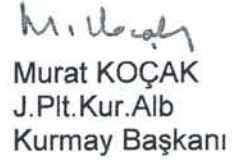 M. Koçak
Murat KOÇAK
J.Plt.Kur.Alb
Kurmay Başkanı